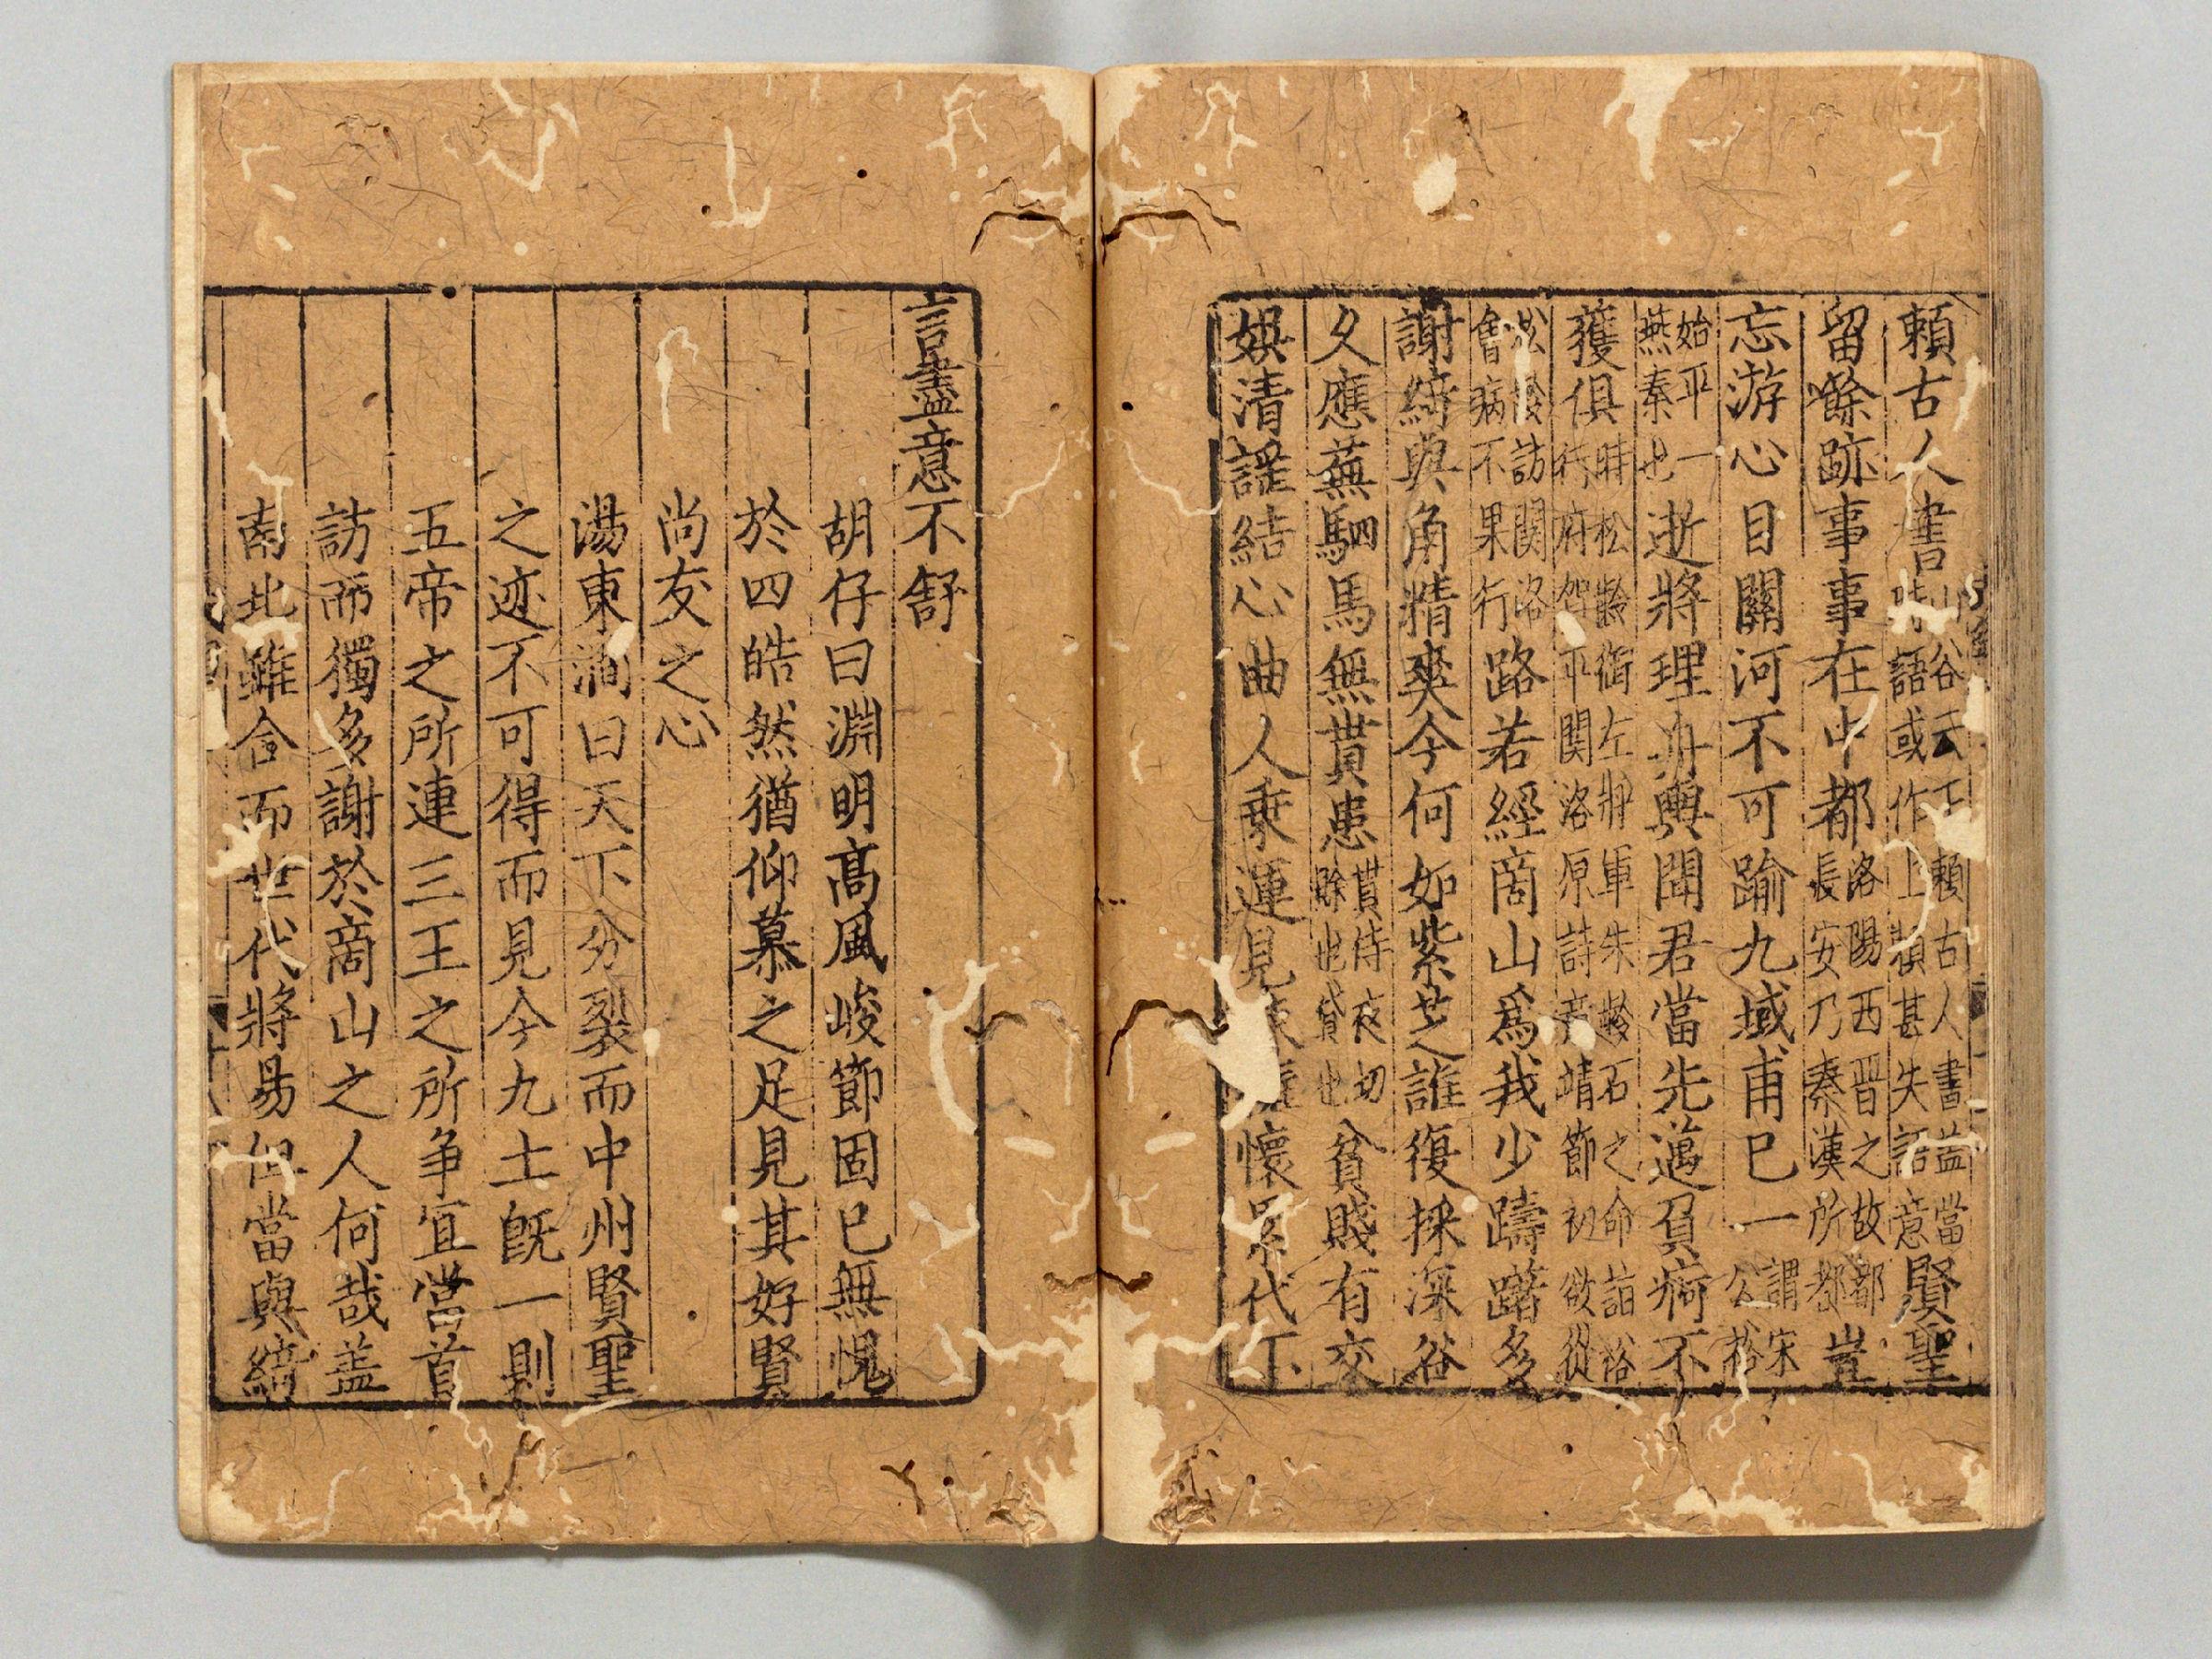 頼古人書山谷云正頼古人書盖當
時語或作上頼甚失語意賢聖
留餘跡事事在中都洛陽西晋之故都
長安乃秦漢所都豈
忘游心目關河不可踰九域甫已一謂宋
公裕
始平一
燕秦也逝將理舟輿聞君當先邁負痾不
獲俱時松齡銜左將軍朱齡石之命詣裕
行府賀平關洛原詩靖節初欲從
松齡訪関洛
會病不果行路若經啇山爲我少躊躇多
謝綺與角精爽今何如紫芝誰復採深谷
久應蕪駟馬無貰患貰侍夜切
賒也貸也貧賤有交
娛清謡結心曲人乗運見懷累代下
言盡意不舒
胡仔曰淵明髙風峻節固已無愧
於四皓然猶仰慕之足見其好賢
尚友之心
湯東澗曰天下分裂而中州賢聖
之迹不可得而見今九土既一則
五帝之所連三王之所争宜當首
訪而獨多謝於啇山之人何哉盖
南北雖合而世代將易但當與綺